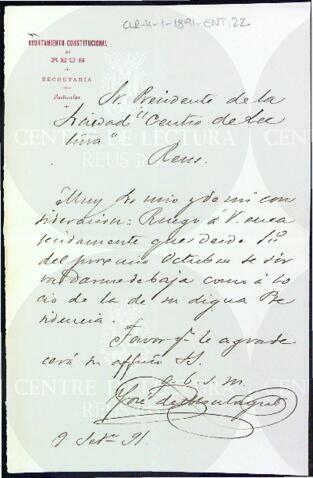 CLR-4-1-1891-ENT.22
AYUNTAMIENTO CONSTITUCIONAL
DE
REUS
SECRETARIA
Particular
Sr. Presidente de la
Sociedad "Centro de Lec
tura"
Reus.
Muy Sr. mio y de mi con
sideracion: Ruego á V. enca
recidamente que desde 1º
del proximo Octubre se sir
va darme de baja como á so
cio de la de su digna Pre
sidencia.
Favor q. le agrade
cerá su affmo. S.
q. b. s. m.
José de
9 Set.e 91.
CENTRE DE LECTURA
REUS
CENTRE DE LECTURA
REUS